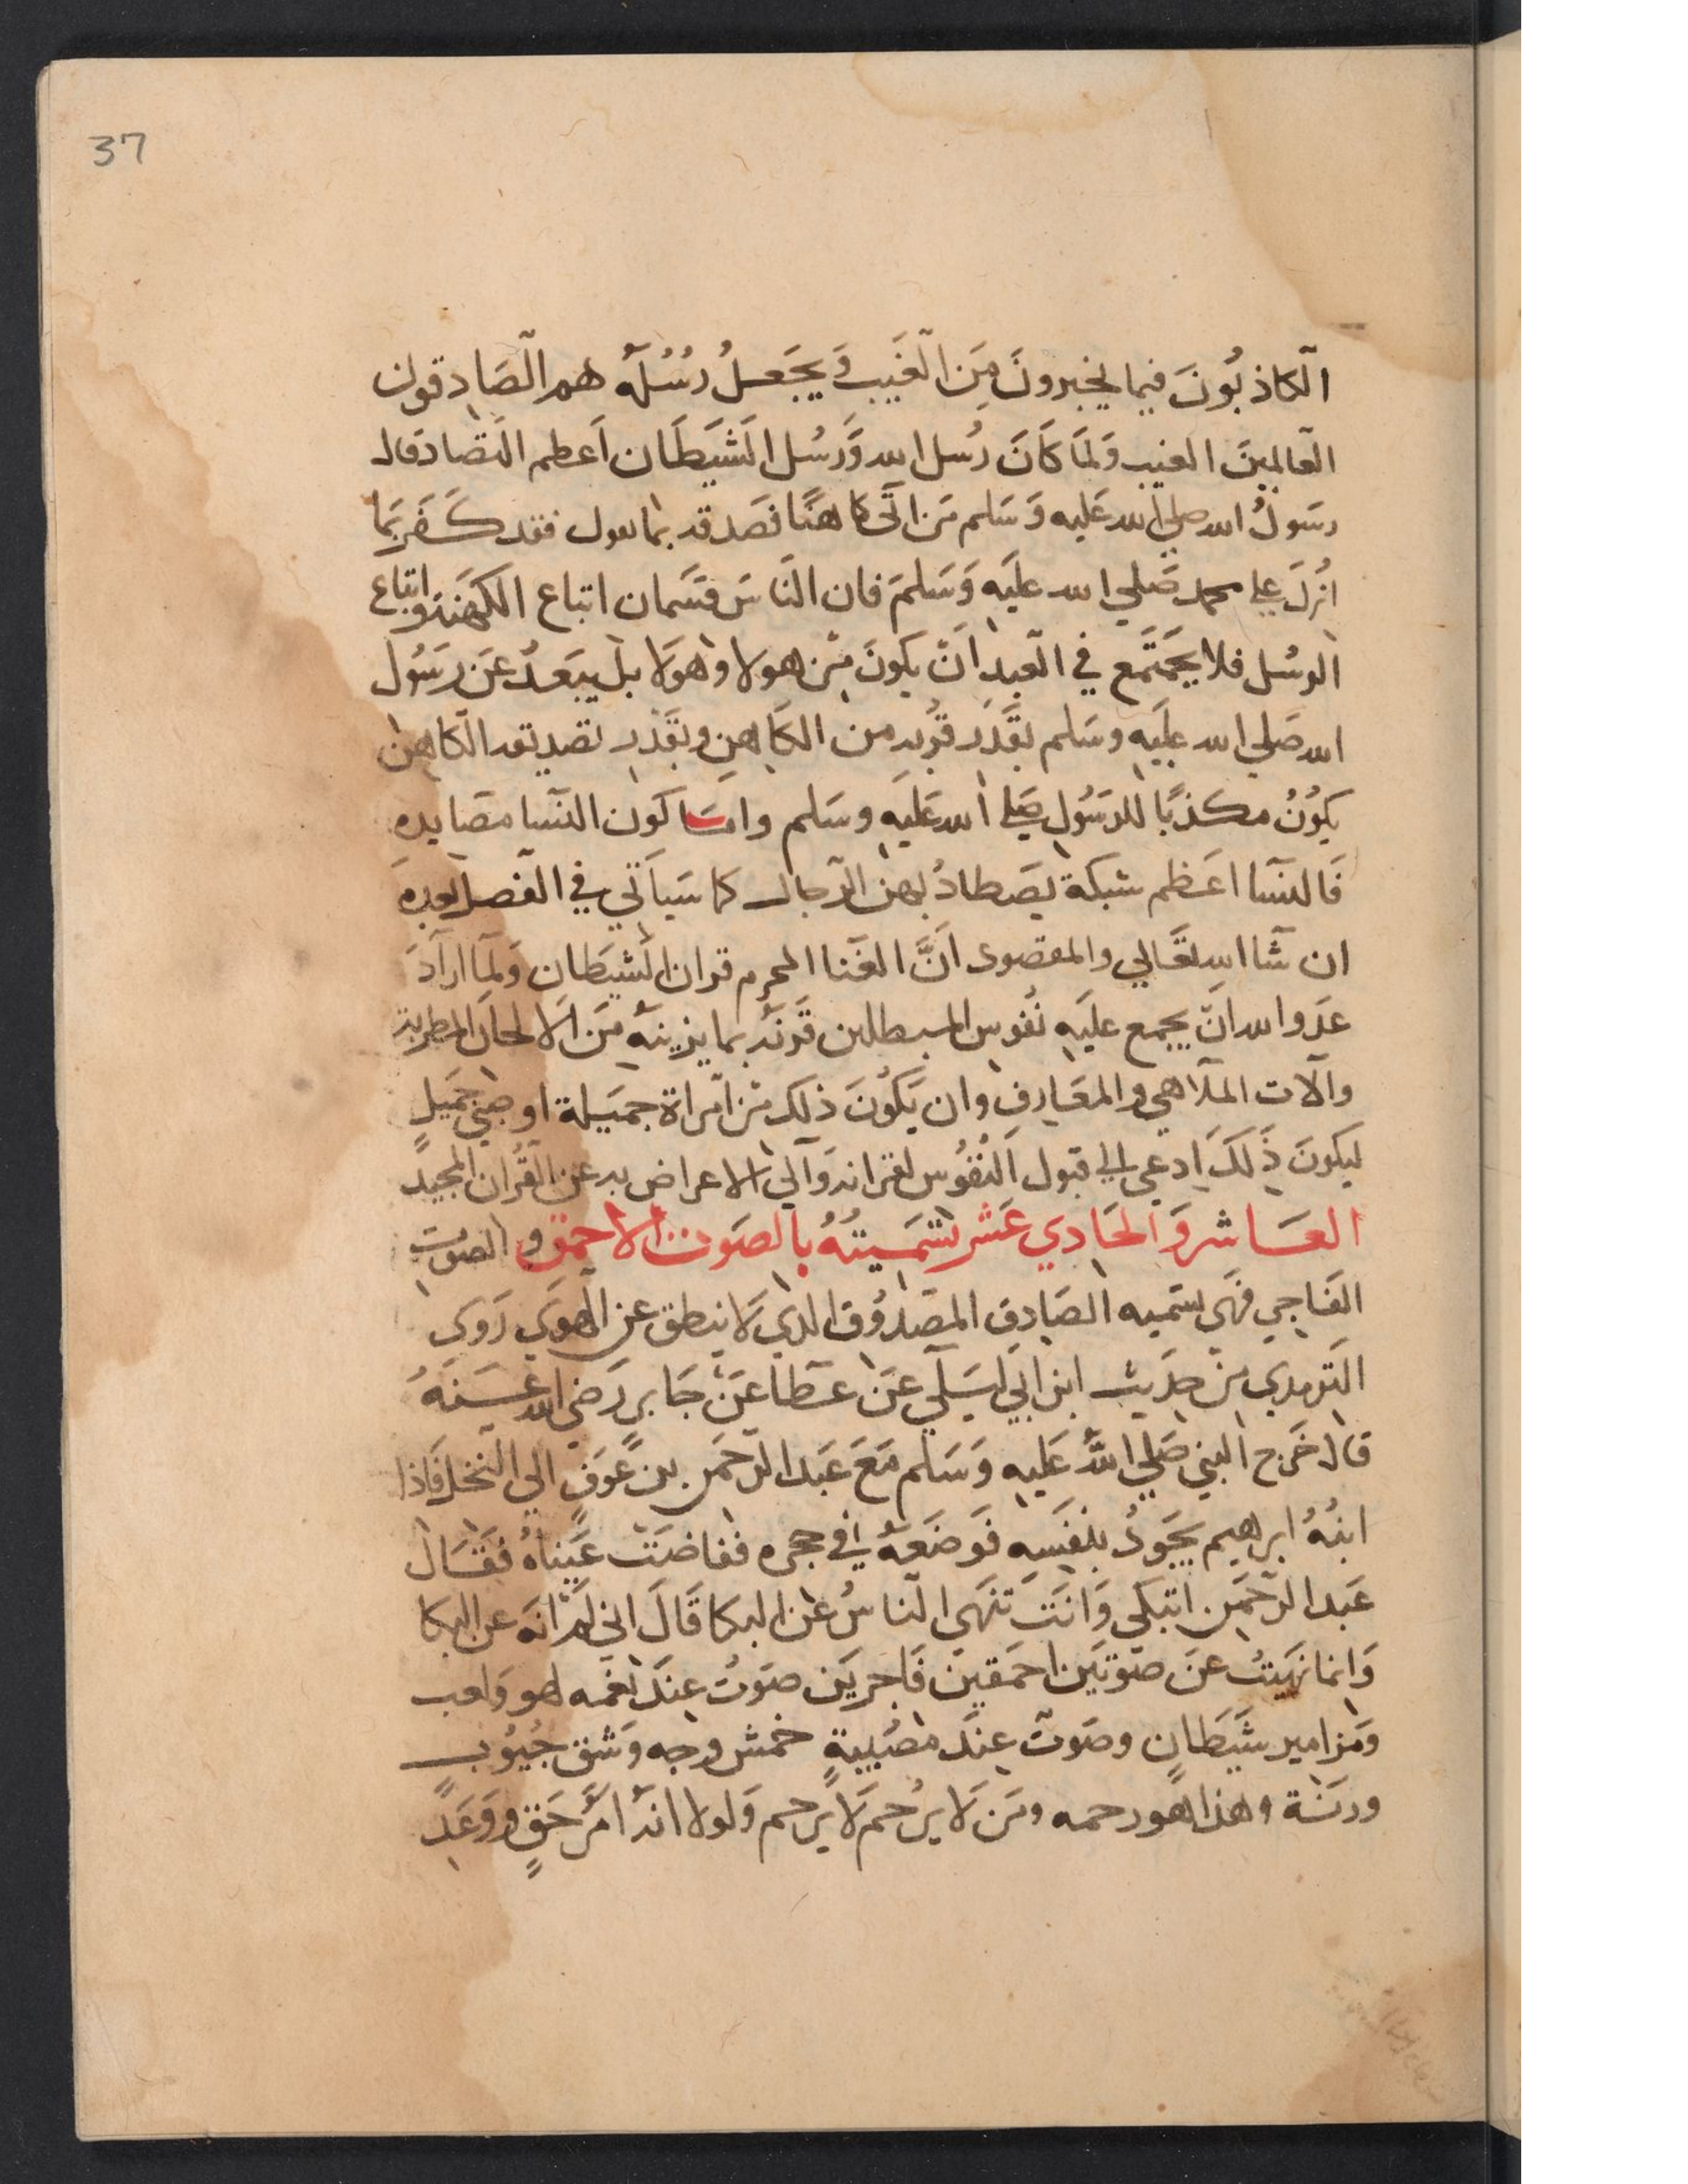 37
الكاذبُونَ فيما يخبرونَ مِنَ الغَيب وَيَجَعلُ رُسُلَهُ هم الصَادقون
العالمينَ الغيب وَلمَا كَانَ رُسل الله وَرسُل الشيَطَان اَعظم التضاد قال
رسَولُ الله صلي الله عَليه وَسَلم مَن اتَى كاهنًا فصَدقه بما يقول فقد كَفَر بَما
اُنزلَ علي محمد صَلي الله عليَه وَسَلمَ فان النَاسَ قسَمان اتباع الكهَنه واتباع
الرسُل فلا يجَتَمع في العَبد اَنَ يكونَ مَن هولا وهَولا بل يبَعدُ عَن رسَوُل
الله صَلي الله عليَه وسَلم بقَدَر قُربه من الكَاهن وبقَدر تصديقه الكاهن
يكوُنُ مكذبًا للرسَوُل صَلي الله عَليَه وسَلم وامَا كون النسا مصَايده
فَالنسَا اعَظم شبكة يصَطادُ بهن الرجال كما سَيأتي في الفصل بعده
ان شا الله تعَالي والمقصود اَنَّ الغَنا المحرم قران الشيَطان وَلما ارادَ
عدَو الله انَ يجمع عليَه نفوس المبطلين قَرنهُ بما يزينهُ مَن الالحان المطربة
والات الملاهي والمعَازف وان يَكوُنَ ذلك مَن امَراة جميَلة او صَبي جَميَلٍ
ليكونَ ذَلكَ ادعي الي قبول النفُوُس لقرانه وَالي الاعراض به عن القُران المجيد
العَاشر وَالحَادي عَشر تسَميتهُ بالصَوت الاحمق و الصَوت
الفَاجي فهَى تسَميه الصَادق المصَدوُق الذي لا ينطق عن الهوَي رَوى
الترمدي مِنَ حدَيث ابن ابي ليَلَي عَن عَطا عَنَ جَابر رَضي الله عَنهُ
قال خَرج النبي صَلي اللهُ عَليه وَسَلم مَعَ عَبد الرحمَن بن عَوفٍ الي النخل فَاذا
ابنُهُ ابرهيم يَجَودُ بنفَسِه فوَضعَهُ في حجره ففاضَتَ عَيَناهُ فقَال
عَبد الرحمَن اتبكي وَانَتَ تنَهَى الناسُ عَن البكا قَالَ اني لمَ انهَ عن البكا
وَانما نهَيتُ عَن صَوتَين احمَقينَ فَاجريَن صَوتٌ عِندَ نغمه لهو وَلعب
وَمَزامير شَيَطَانٍ وصَوت عِندَ مصُيبةٍ خمش وجه وَشق جُيوُب
ورنة وهذا هو رحمه ومَن لَا يرُحم لَا يُرحم وَلولا انهُ امَر حَق ووَعَدٍ